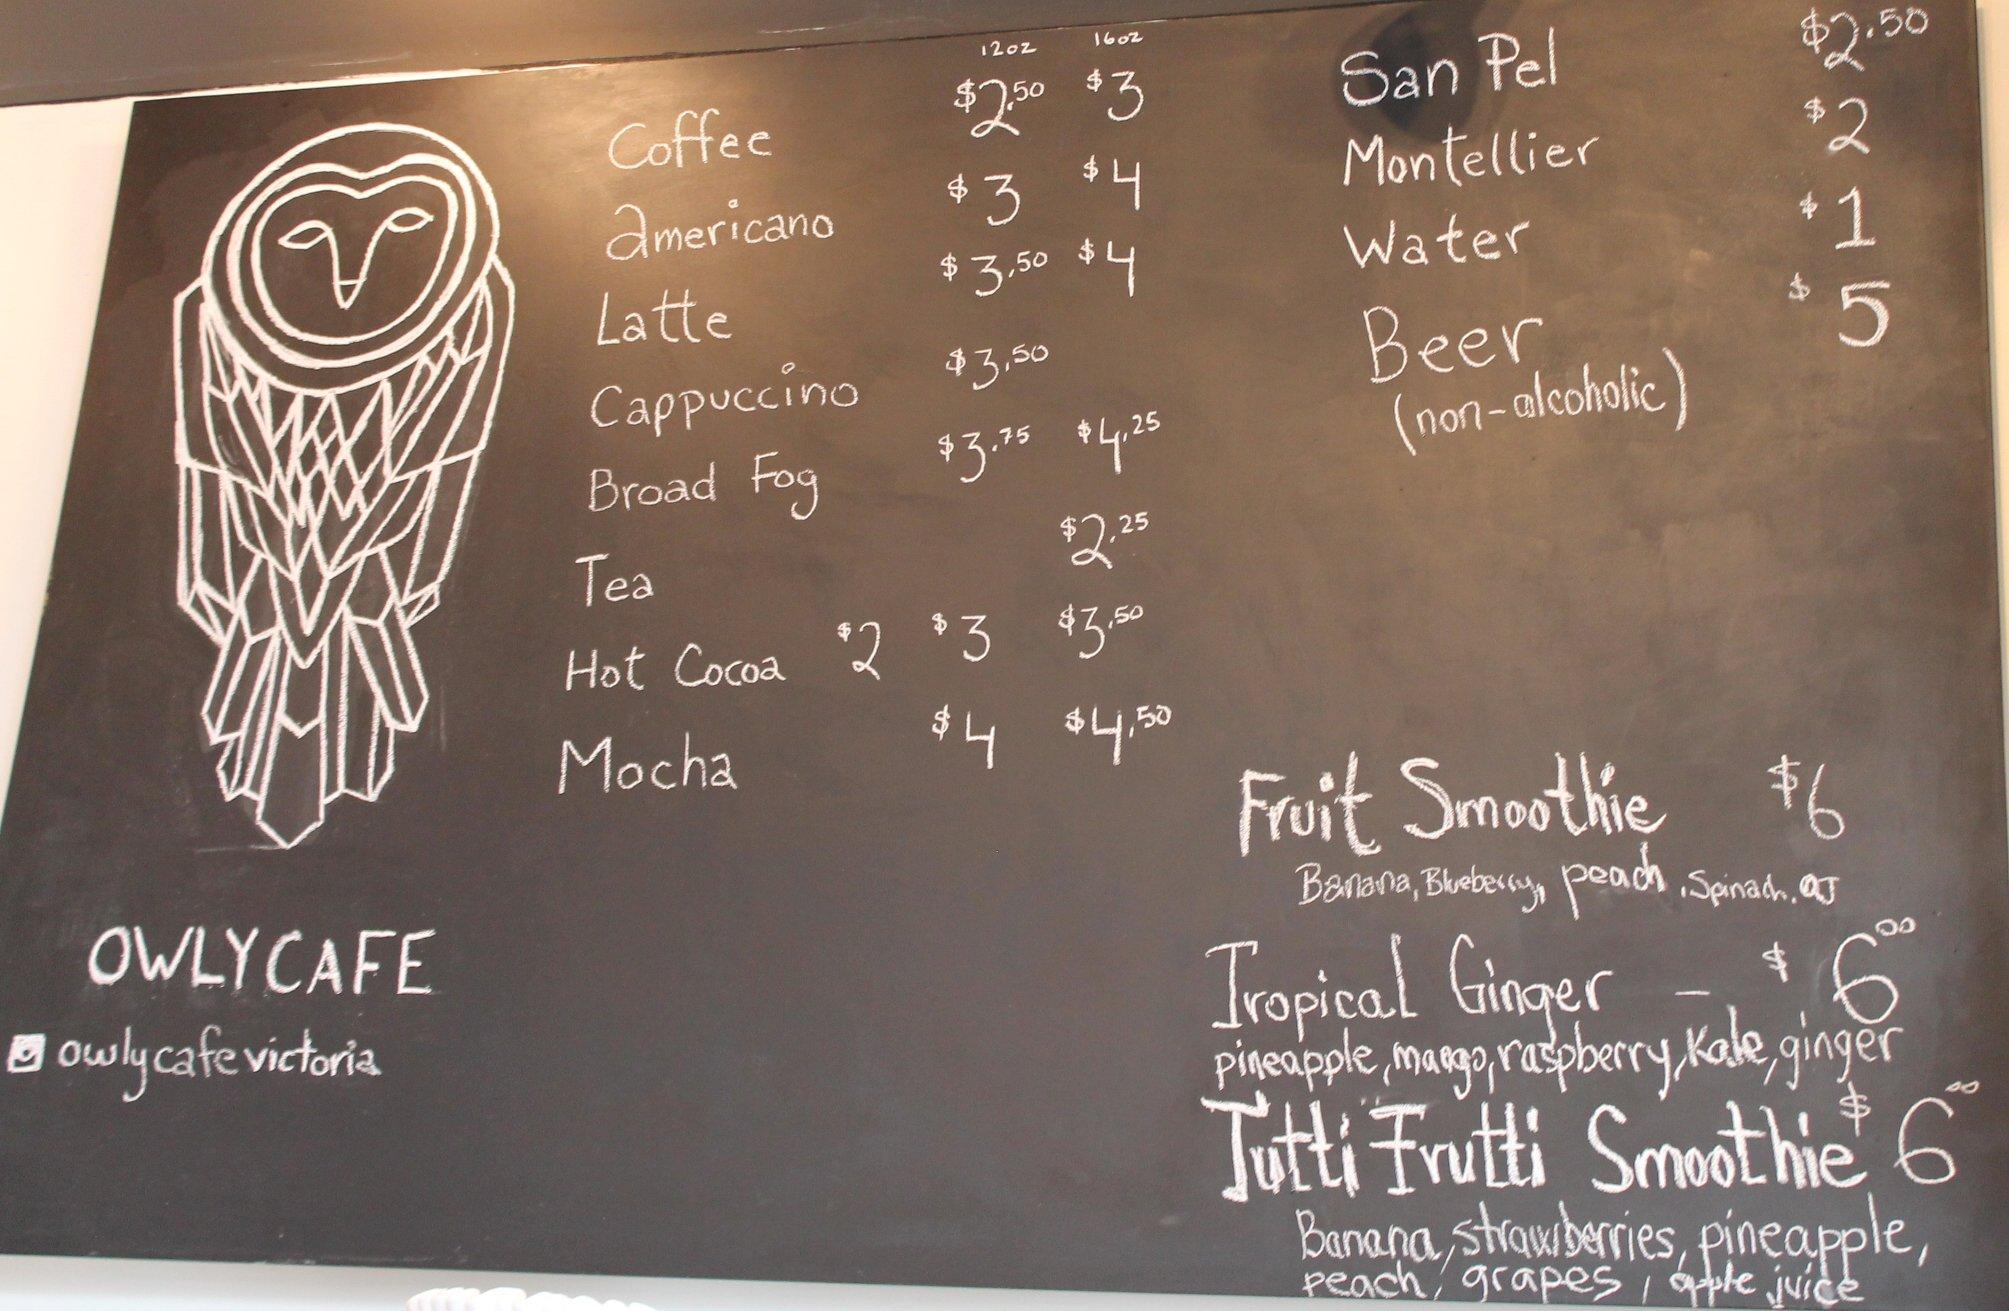 12oz 16oz
Coffee $2.50 $3
Americano $3 $4
Latte $3.50 $4
Cappuccino $3.50
Broad Fog $3.75 $4.25
Tea $2.25
Hot Cocoa $2 $3 $3.50
Mocha $4 $4.50
OWLYCAFE
owlycafevictoria
San Pel $2.50
Montellier $2
Water $1
Beer $5
(non-alcoholic)
Fruit Smoothie $6
Banana, Blueberry, peach, Spinach, OJ
Tropical Ginger - $6.00
pineapple, mango, raspberry, Kale, ginger
Tutti Frutti Smoothie $6.00
Banana, strawberries, pineapple,
peach, grapes, apple juice